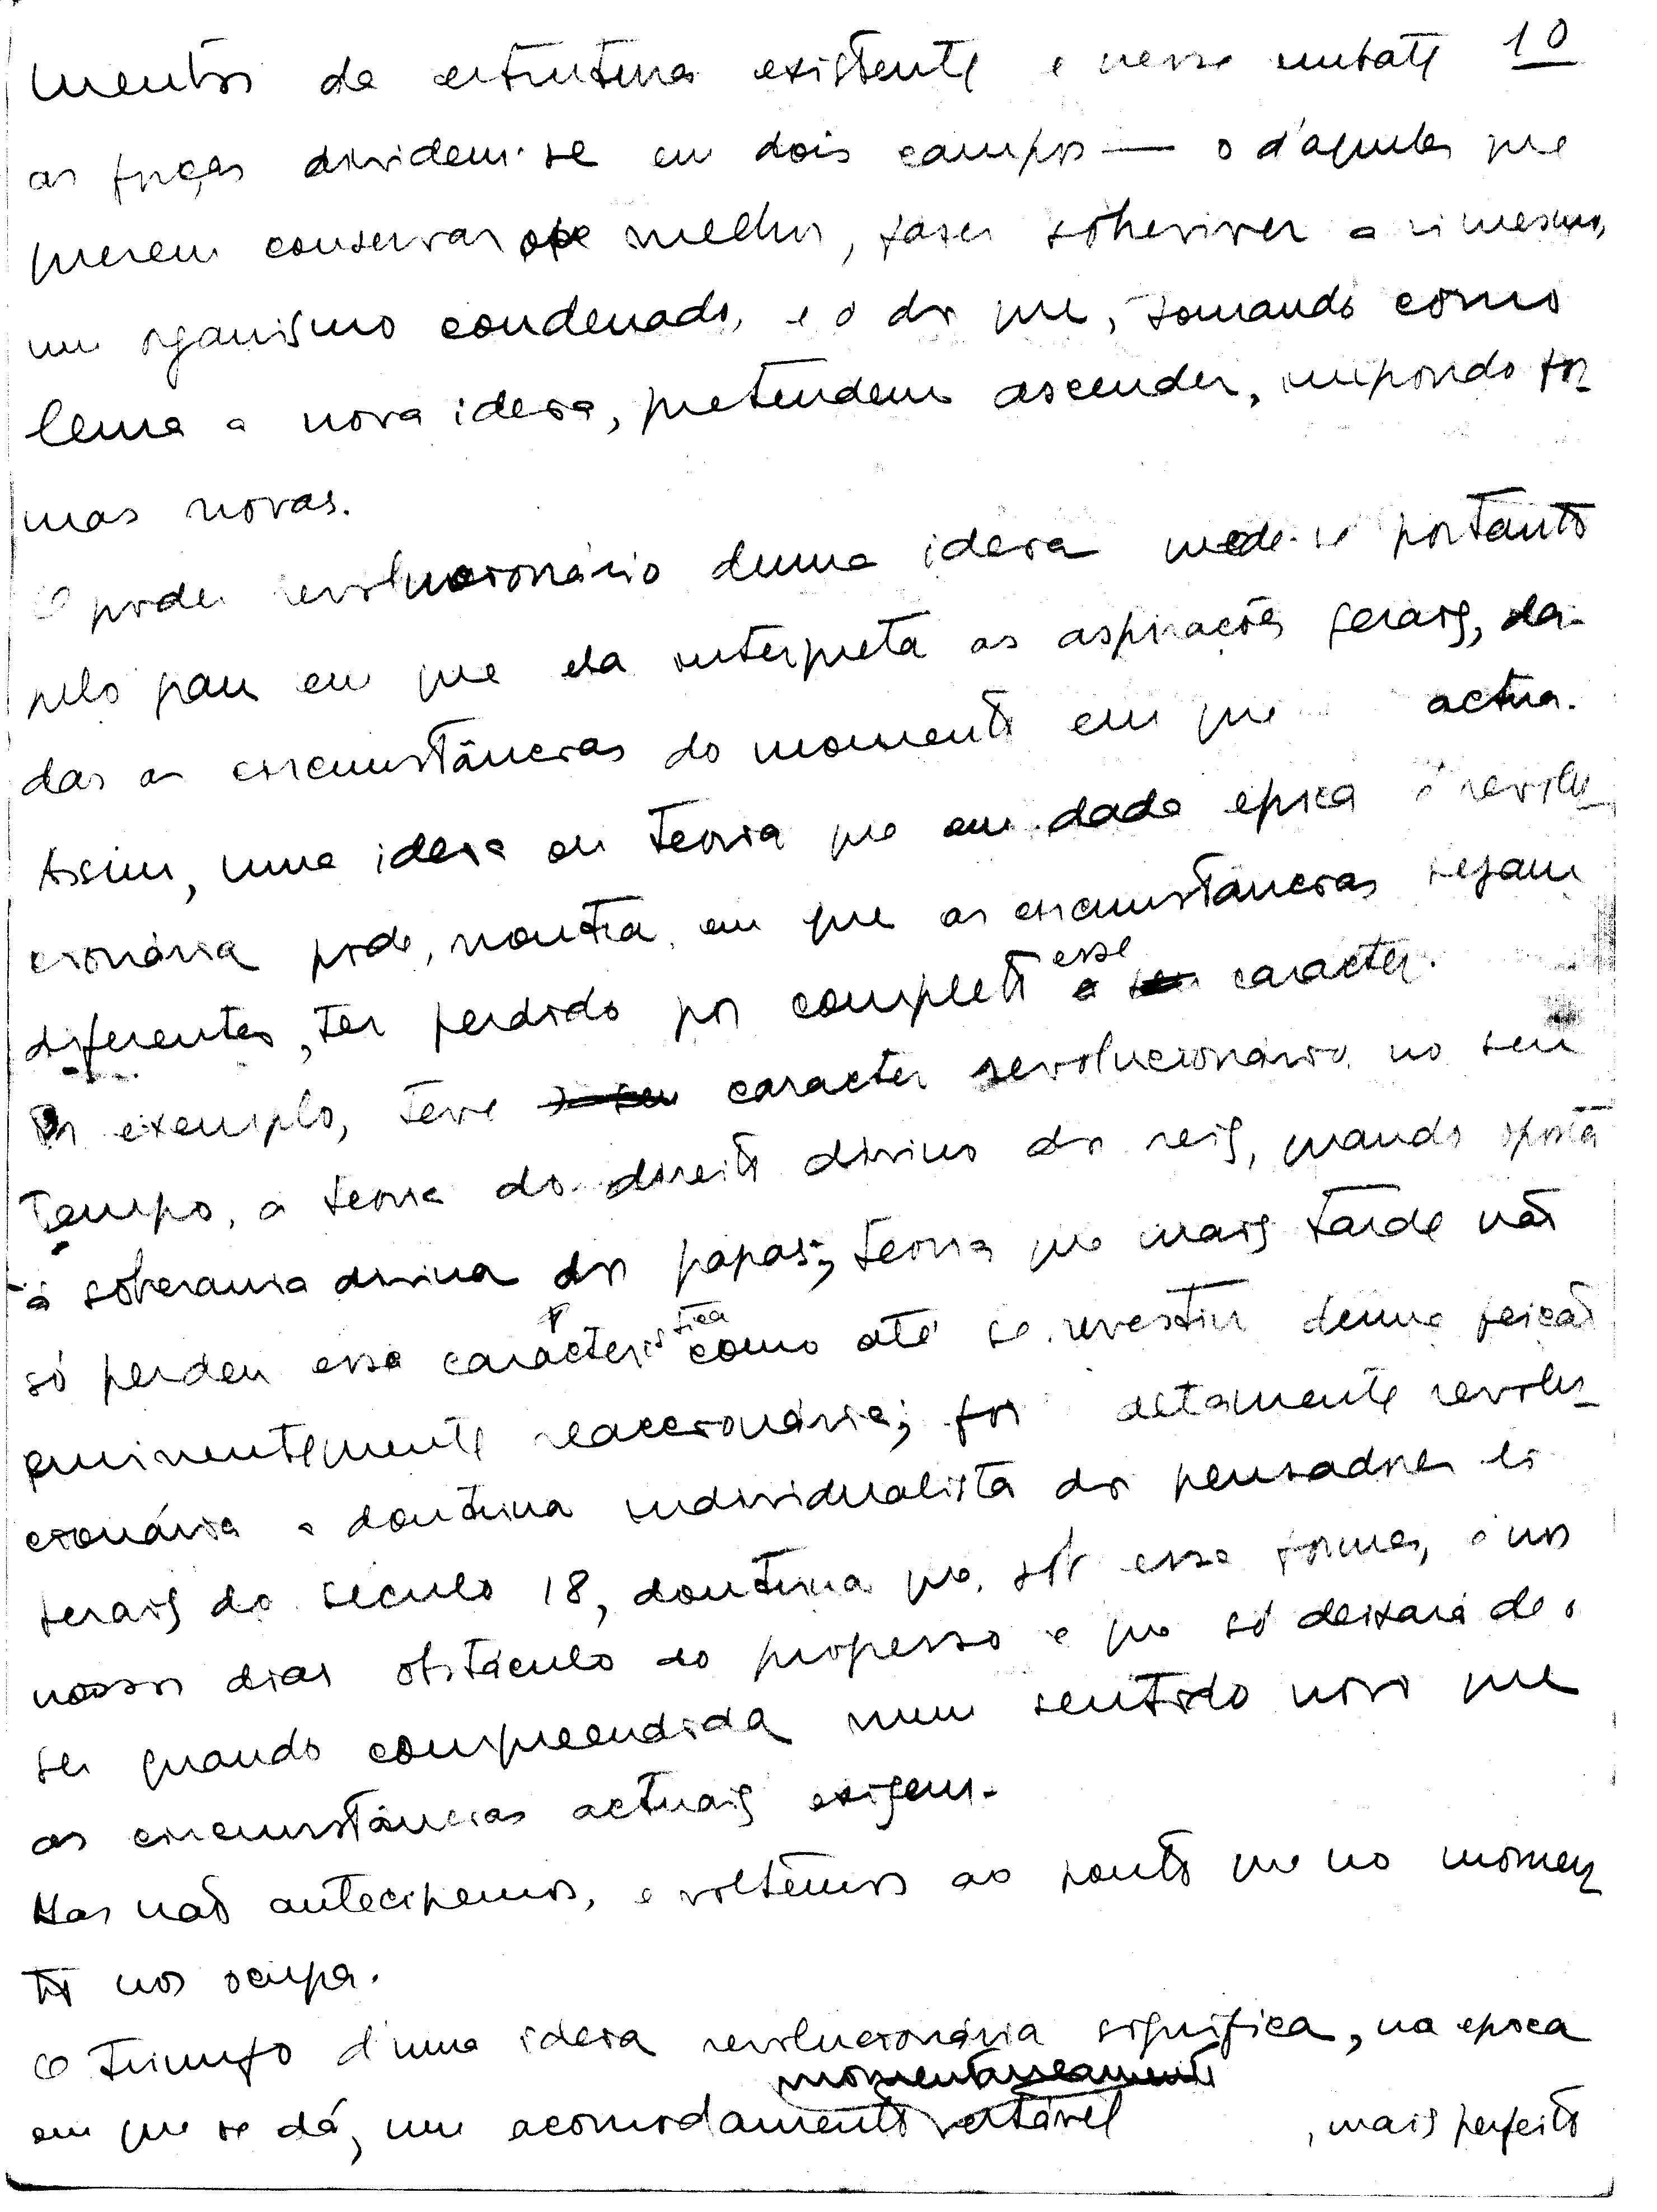 10
mentos da estrutura existente e nesse embate
as fôrças dividem-se em dois campos — o d'aqueles que
querem conservar melhor, fazer sobreviver a si mesmo,
um organismo condenado, e o dos que, tomando como
lema a nova ideia, pretendem ascender, impondo for
mas novas.
O poder revolucionário duma ideia mede-se portanto
pelo grau em que ela interpreta as aspirações gerais, da-
das as circunstâncias do momento em que actua.
Assim, uma ideia ou teoria que em dada epoca é revolu_
cionária pode, noutra, em que as circunstâncias sejam
diferentes, ter perdido por completo esse caracter.
Por exemplo, teve caracter revolucionário, no seu
tempo, a teoria do direito divino dos reis, quando oposta
à soberania divina dos papas; teoria que mais tarde não
só perdeu essa caracteristica como até se revestiu duma feição
eminentemente reaccionária; foi altamente revolu_
cionária a doutrina individualista dos pensadores li
berais do século 18, doutrina que, sob essa forma, é nos
nossos dias obstáculo ao progresso e que só deixará de o
ser quando compreendida num sentido novo que
as circunstâncias actuais exigem.
Mas não antecipemos, e voltemos ao ponto que no momen
to nos ocupa.
O triunfo d'uma ideia revolucionária significa, na epoca
momentaneamente
em que se dá, um acomodamento estável, mais perfeito